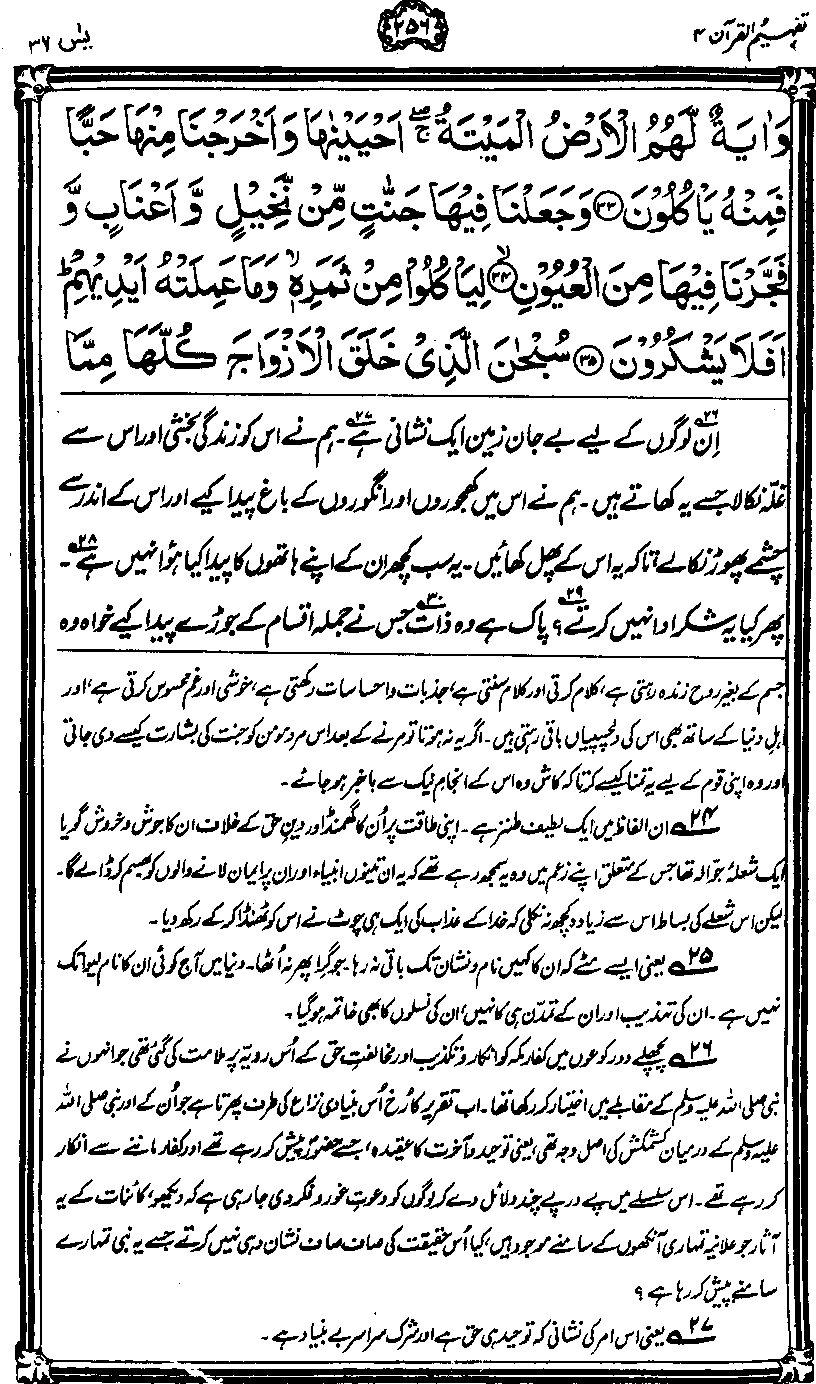 تفہیم القرآن ۴
۲۵۶
یٰسٓ ۳۶
وَاٰيَةٌ لَّهُمُ الْاَرْضُ الْمَيْتَةُ ۖۚ اَحْيَيْنٰهَا وَاَخْرَجْنَا مِنْهَا حَبًّا
فَمِنْهُ يَاْكُلُوْنَ ﴿۳۳﴾ وَجَعَلْنَا فِيْهَا جَنّٰتٍ مِّنْ نَّخِيْلٍ وَّاَعْنَابٍ وَّ
فَجَّرْنَا فِيْهَا مِنَ الْعُيُوْنِ ﴿۳۴﴾ۙ لِيَاْكُلُوْا مِنْ ثَمَرِهٖ ۙ وَمَا عَمِلَتْهُ اَيْدِيْهِمْ ؕ
اَفَلَا يَشْكُرُوْنَ ﴿۳۵﴾ سُبْحٰنَ الَّذِيْ خَلَقَ الْاَزْوَاجَ كُلَّهَا مِمَّا
اِن ۲۶ لوگوں کے لیے بے جان زمین ایک نشانی ہے ۲۷۔ ہم نے اس کو زندگی بخشی اور اس سے
غلّہ نکالا جسے یہ کھاتے ہیں۔ ہم نے اس میں کھجوروں اور انگوروں کے باغ پیدا کیے اور اس کے اندر سے
چشمے پھوڑ نکالے، تاکہ یہ اس کے پھل کھائیں۔ یہ سب کچھ ان کے اپنے ہاتھوں کا پیدا کیا ہوا نہیں ہے ۲۸۔
پھر کیا یہ شکر ادا نہیں کرتے ۲۹؟ پاک ہے وہ ذات ۳۰ جس نے جملہ اقسام کے جوڑے پیدا کیے خواہ وہ
جسم کے بغیر روح زندہ رہتی ہے، کلام کرتی اور کلام سنتی ہے، جذبات و احساسات رکھتی ہے، خوشی اور غم محسوس کرتی ہے، اور
اہلِ دنیا کے ساتھ بھی اس کی دلچسپیاں باقی رہتی ہیں۔ اگر یہ نہ ہوتا تو مرنے کے بعد اس مردِ مومن کو جنت کی بشارت کیسے دی جاتی
اور وہ اپنی قوم کے لیے یہ تمنا کیسے کرتا کہ کاش وہ اس کے انجام نیک سے باخبر ہو جائے۔
۲۴ ان الفاظ میں ایک لطیف طنز ہے۔ اپنی طاقت پر اُن کا گھمنڈ اور دینِ حق کے خلاف ان کا جوش و خروش گویا
ایک شعلۂ جوالہ تھا جس کے متعلق اپنے زعم میں وہ یہ سمجھ رہے تھے کہ یہ ان تینوں انبیاء اور ان پر ایمان لانے والوں کو بھسم کر ڈالے گا۔
لیکن اس شعلے کی بساط اس سے زیادہ کچھ نہ نکلی کہ خدا کے عذاب کی ایک ہی چوٹ نے اس کو ٹھنڈا کر کے رکھ دیا۔
۲۵ یعنی ایسے مٹے کہ ان کا کہیں نام و نشان تک باقی نہ رہا۔ جو گرا پھر نہ اُٹھا۔ دنیا میں آج کوئی ان کا نام لیوا تک
نہیں ہے۔ ان کی تہذیب اور ان کے تمدّن ہی کا نہیں، ان کی نسلوں کا بھی خاتمہ ہوگیا۔
۲۶ پچھلے دو رکوعوں میں کفارِ مکہ کو انکار و تکذیب اور مخالفتِ حق کے اُس رویہ پر ملامت کی گئی تھی جو انہوں نے
نبی صلی اللہ علیہ وسلم کے مقابلے میں اختیار کر رکھا تھا۔ اب تقریر کا رُخ اُس بنیادی نزاع کی طرف پھرتا ہے جو اُن کے اور نبی صلی اللہ
علیہ وسلم کے درمیان کشمکش کی اصل وجہ تھی، یعنی توحید و آخرت کا عقیدہ، جسے حضورؐ پیش کر رہے تھے اور کفار ماننے سے انکار
کر رہے تھے۔ اس سلسلے میں پے در پے چند دلائل دے کر لوگوں کو دعوتِ غور و فکر دی جا رہی ہے کہ دیکھو، کائنات کے یہ
آثار جو علانیہ تمہاری آنکھوں کے سامنے موجود ہیں، کیا اُس حقیقت کی صاف صاف نشان دہی نہیں کرتے جسے یہ نبی تمہارے
سامنے پیش کر رہا ہے؟
۲۷ یعنی اس امر کی نشانی کہ توحید ہی حق ہے اور شرک سراسر بے بنیاد ہے۔